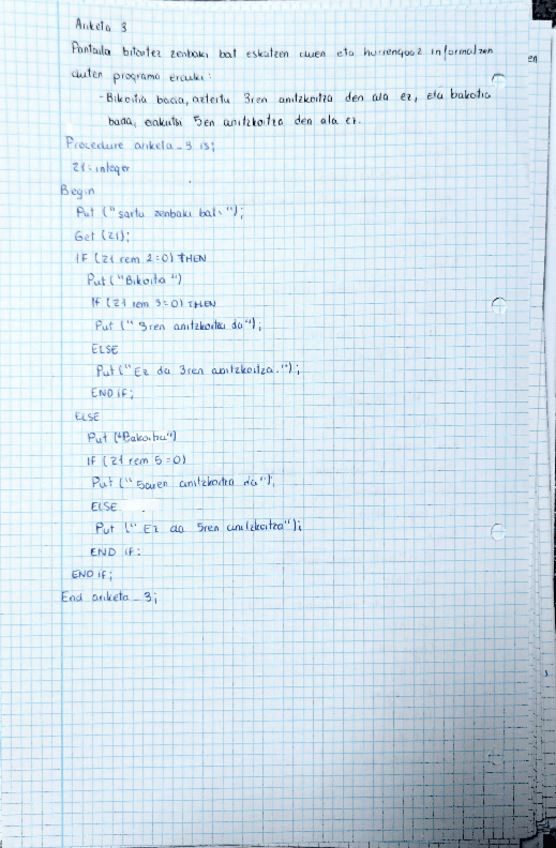 Ariketa 3
Pantaila bitartez zenbaki bat eskatzen duen eta hurrengoaz informatzen
duten programa eraiki:
- Bikoitia bada, aztertu 3ren anitzkoitza den ala ez, eta bakoitia
bada, ea 5en anitzkoitza den ala ez.
Procedure ariketa_3 is;
z1: integer
Begin
Put ("sartu zenbaki bat: ");
Get (z1);
IF (z1 rem 2=0) THEN
Put ("Bikoitia")
IF (z1 rem 3=0) THEN
Put (" 3ren anitzkoitza da");
ELSE
Put ("Ez da 3ren anitzkoitza.");
END if;
ELSE
Put ("Bakoitia")
IF (z1 rem 5=0)
Put (" 5aren anitzkoitza da");
ELSE
Put (" Ez da 5ren anitzkoitza");
END if:
END if;
End ariketa_3;
en